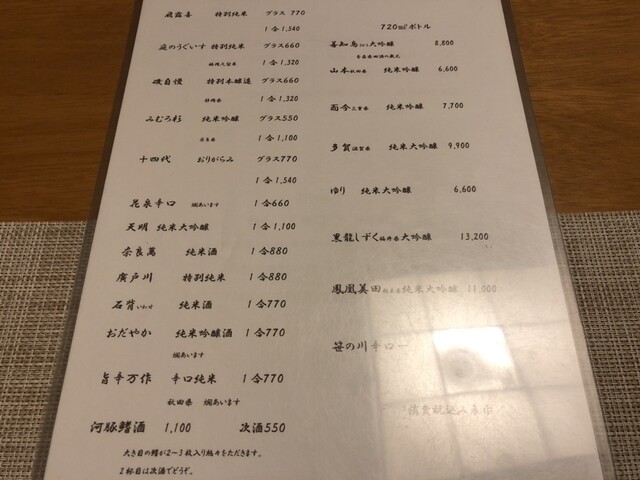 飛露喜 特別純米 グラス 770
1合1,540
庭のうぐいす 特別純米 グラス660
福岡久留米 1合1,320
磯自慢 特別本醸造 グラス660
静岡県 1合1,320
みむろ杉 純米吟醸 グラス550
奈良県 1合1,100
十四代 おりがらみ グラス770
1合1,540
花泉辛口 燗あいます 1合660
天明 純米大吟醸 1合1,100
奈良萬 純米酒 1合880
廣戸川 特別純米 1合880
石背いわせ 純米酒 1合770
おだやか 純米吟醸酒 1合770
燗あいます
旨辛万作 辛口純米 1合770
秋田県 燗あいます
河豚鰭酒 1,100 次酒550
大き目の鰭が2~3枚入り熱々をただきます。
2杯目は次酒でどうぞ。
720mlボトル
善知鳥 大吟醸 8,800
山本秋田県 純米吟醸 6,600
而今三重県 純米吟醸 7,700
多賀滋賀県 純米大吟醸 9,900
ゆり 純米大吟醸 6,600
黒龍しずく福井県大吟醸 13,200
鳳凰美田栃木県純米大吟醸 11,000
笹の川辛口一
消費税込み表示